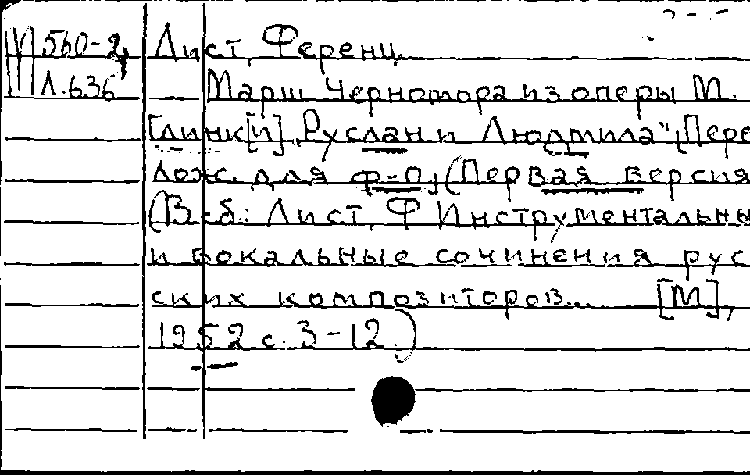 Ш 560-2 Лист, Ференц.
Л.636 Марш Черномора из оперы М.
Глинк[и] „Руслан и Людмила“, [Пере
лож. для ф-п, (Первая версия
(В сб.: Лист, Ф Инструментальны
и вокальные сочинения рус
ских композиторов... [М],
1952 с. 3-12.)